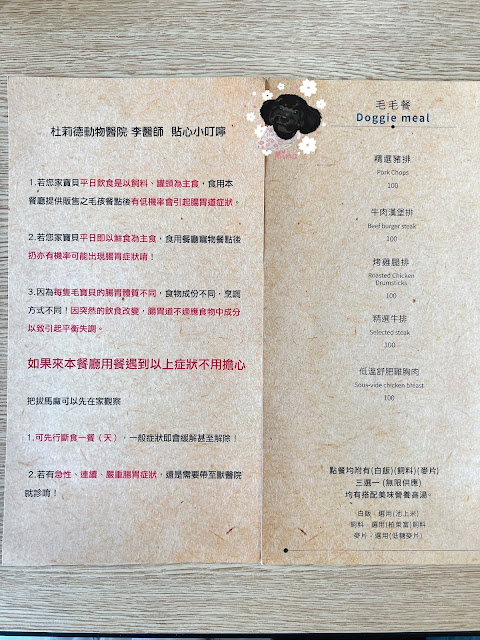 杜莉德動物醫院 李醫師 貼心小叮嚀
1.若您家寶貝平日飲食是以飼料、罐頭為主食，食用本
餐廳提供販售之毛孩餐點後有低機率會引起腸胃道症狀。
2.若您家寶貝平日即以鮮食為主食，食用餐廳寵物餐點後
扔亦有機率可能出現腸胃症狀唷！
3.因為每隻毛寶貝的腸胃體質不同，食物成份不同，烹調
方式不同！因突然的飲食改變，腸胃道不適應食物中成分
以致引起平衡失調。
如果來本餐廳用餐遇到以上症狀不用擔心
把拔馬麻可以先在家觀察
1.可先行斷食一餐（天），一般症狀即會緩解甚至解除！
2.若有急性、連續、嚴重腸胃症狀，還是需要帶至獸醫院
就診唷！
毛毛餐
Doggie meal
精選豬排
Pork Chops
100
牛肉漢堡排
Beef burger steak
100
烤雞腿排
Roasted Chicken
Drumsticks
100
精選牛排
Selected steak
100
低溫舒肥雞胸肉
Sous-vide chicken breast
100
點餐均附有(白飯)(飼料)(麥片)
三選一 (無限供應)
均有搭配美味營養高湯。
白飯、選用(池上米)
飼料、選用(柏萊富)飼料
麥片、選用(低糖麥片)